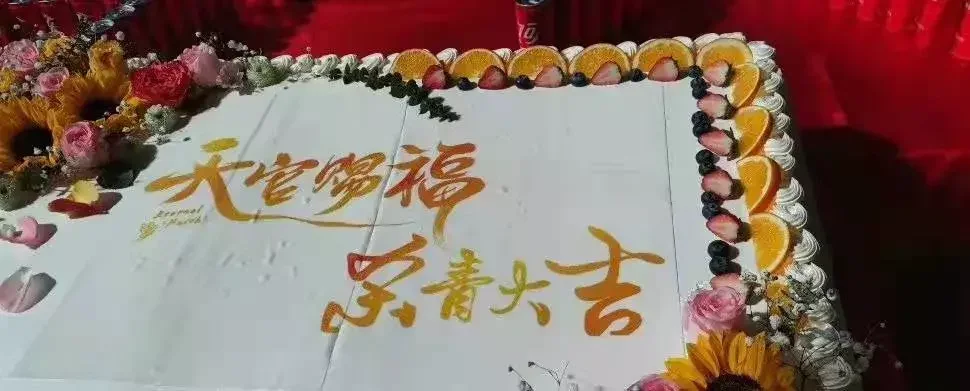 天官赐福
Eternal
Faith
杀青大吉